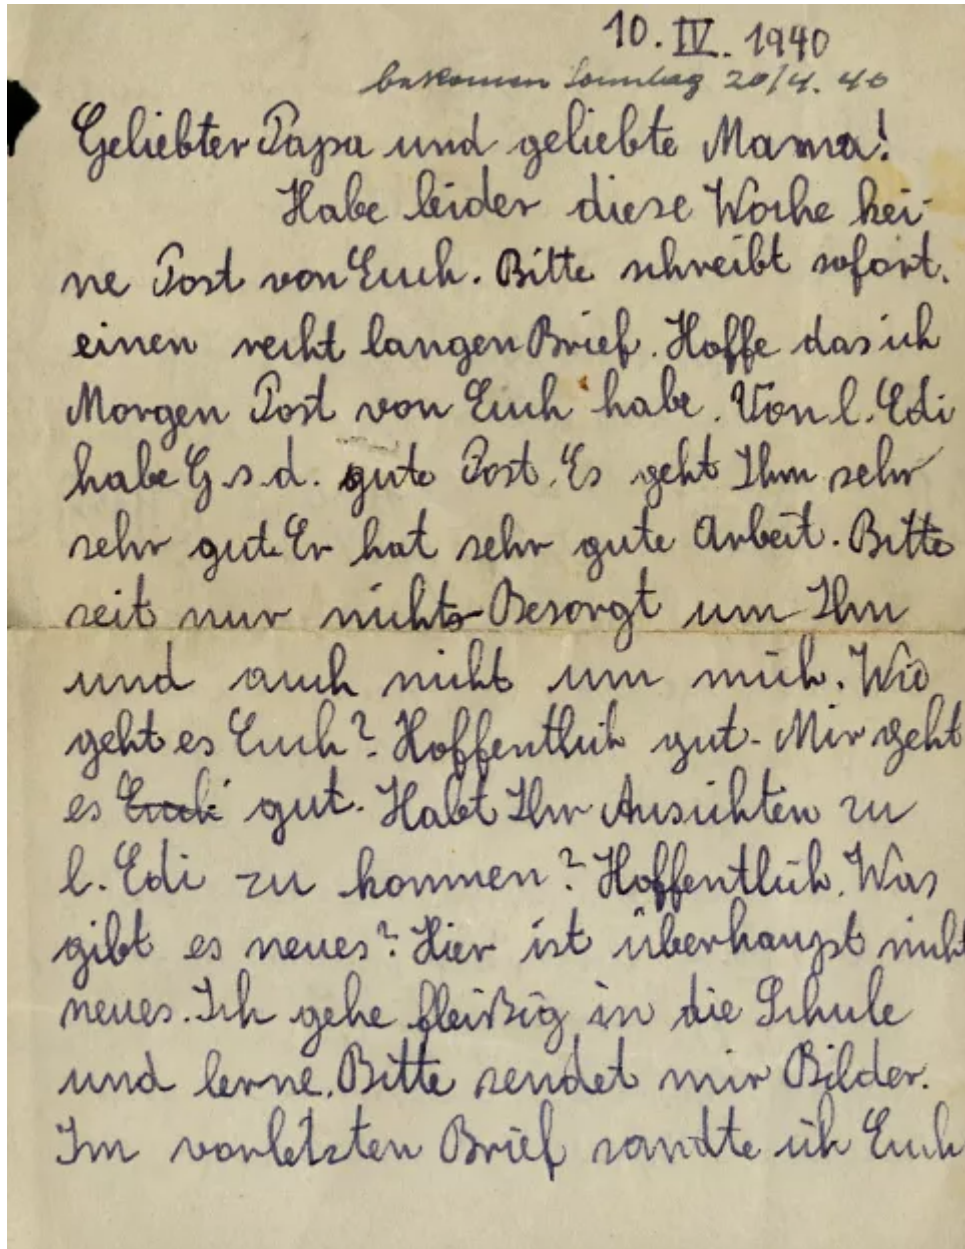 10. IV. 1940
bekomen Sonntag 20/4. 40
Geliebter Papa und geliebte Mama!
Habe leider diese Woche kei-
ne Post von Euch. Bitte schreibt sofort.
einen recht langen Brief. Hoffe das ich
Morgen Post von Euch habe. Von l. Edi
habe G.s.d. gute Post. Es geht Ihm sehr
sehr gut. Er hat sehr gute Arbeit. Bitte
seit nur nicht Besorgt um Ihn
und auch nicht um mich. Wie
geht es Euch? Hoffentlich gut. Mir geht
es Euch gut. Habt Ihr Ausichten zu
l. Edi zu kommen? Hoffentlich. Was
gibt es neues? Hier ist überhaupt nicht
neues. Ich gehe fleißig in die Schule
und lerne. Bitte sendet mir Bilder.
Im vorletzten Brief sandte ich Euch